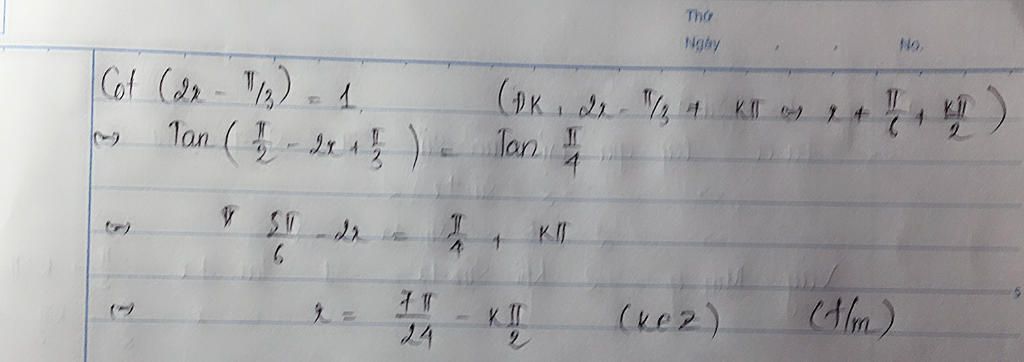 Thứ
Ngày . . No.
Cot (2x - π/3) = 1. (ĐK: 2x - π/3 ≠ kπ ⇔ x ≠ π/6 + kπ/2)
⇔ Tan (π/2 - 2x + π/3) = Tan π/4
⇔ 5π/6 - 2x = π/4 + kπ
⇔ x = 7π/24 - kπ/2 (k∈Z) (t/m)